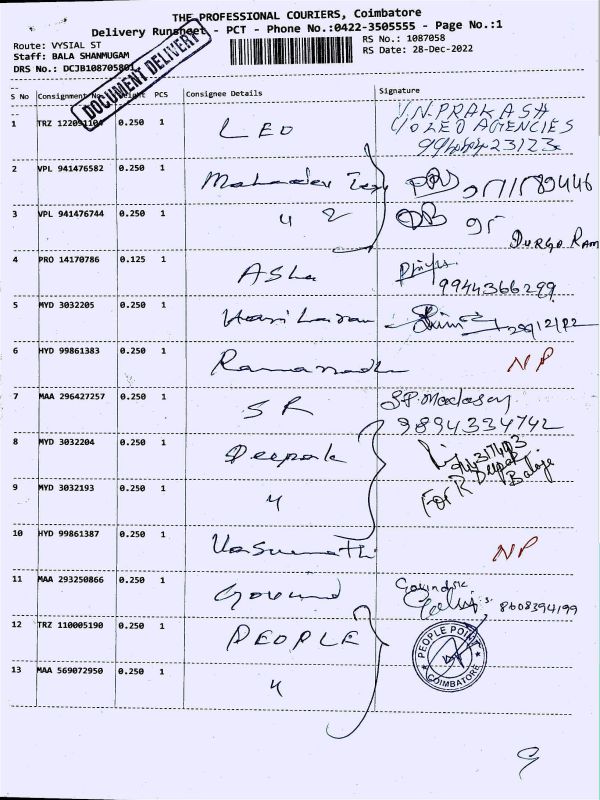 THE PROFESSIONAL COURIERS, Coimbatore
Delivery Runsheet - PCT - Phone No.:0422-3505555 - Page No.:1
Route: VYSIAL ST RS No.: 1087058
Staff: BALA SHANMUGAM RS Date: 28-Dec-2022
DRS No.: DCJB108705801
DOCUMENT DELIVERY
S No Consignment No Weight PCS Consignee Details Signature
1 TRZ 0.250 1 LEO V.N.PRAKASH
LEO AGENCIES
2 VPL 941476582 0.250 1 Mahadev
3 VPL 941476744 0.250 1 " 2 95
DURGO RAM
4 PRO 14170786 0.125 1 ASha
9944366299
5 MYD 3032205 0.250 1 Hari
6 HYD 99861383 0.250 1 NP
7 MAA 296427257 0.250 1 SR
9894334742
8 MYD 3032204 0.250 1 Deepak
For R. Deepak
Balaje
9 MYD 3032193 0.250 1 "
10 HYD 99861387 0.250 1 Vasumathi NP
11 MAA 293250866 0.250 1 Govind
8608394199
12 TRZ 110005190 0.250 1 PEOPLE
PEOPLE POINT
COIMBATORE
13 MAA 569072950 0.250 1 "